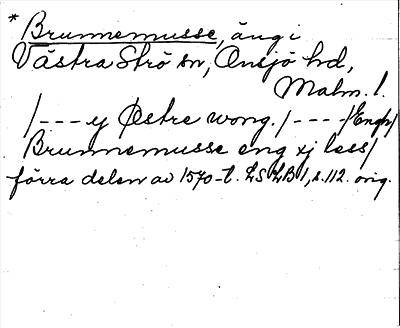 * Brunnemusse, äng i
Västra Strö sn, Onsjö hd,
Malm. l.
/--- y Østre wong. /--- /Engh/
Brunnemusse eng xj less/
förra delen av 1570-t. LSLB 1, s. 112. orig.